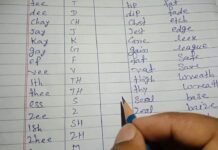 Tee T
Dee D dip fade
Chay CH Chest etch
Jay J Jest edge
Kay K Cane leek
gay G Gain league
ef F fat Safe
Vee V Vat Save
Ith TH thigh loreath
thee TH thy
ess S Seal base
Zee Z Zeal
ish SH
Zhee ZH
M